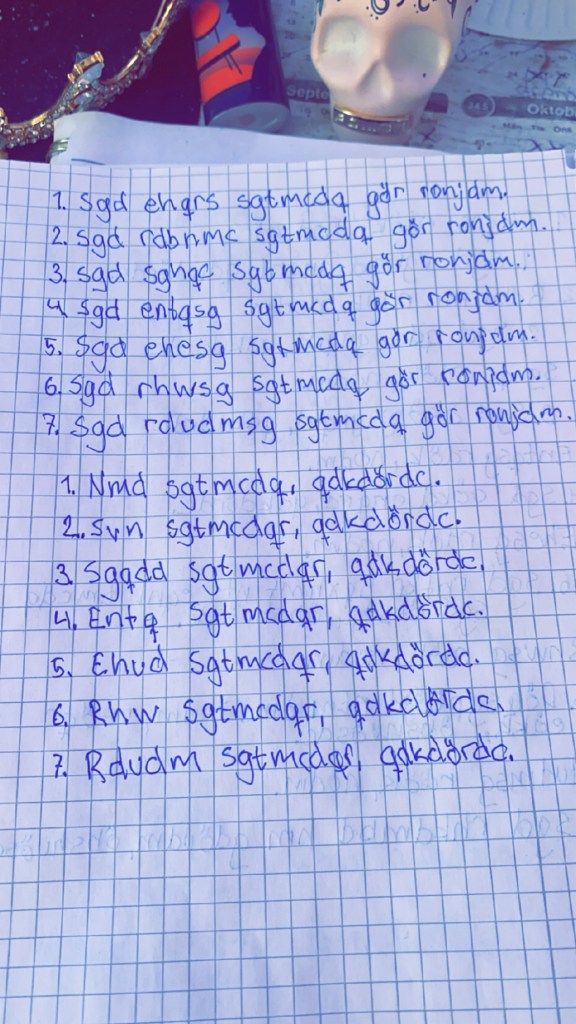 Septe
Oktob
1. Sgd ehqrs sgtmcdq gör ronjdm.
2. Sgd rdbnmc sgtmcdq gör ronjdm.
3. Sgd sghqc sgtmcdq gör ronjdm.
4. Sgd entqsg sgtmcdq gör ronjdm.
5. Sgd ehesg sgtmcdq gör ronjdm.
6. Sgd rhwsg sgtmcdq gör ronjdm.
7. Sgd rdudmsg sgtmcdq gör ronjdm.
1. Nmd sgtmcdq, qdkdördc.
2. Svn sgtmcdqr, qdkdördc.
3. Sgqdd sgtmcdqr, qdkdördc.
4. Entq sgtmcdqr, qdkdördc.
5. Ehud sgtmcdqr, qdkdördc.
6. Rhw sgtmcdqr, qdkdördc.
7. Rdudm sgtmcdqr, qdkdördc.